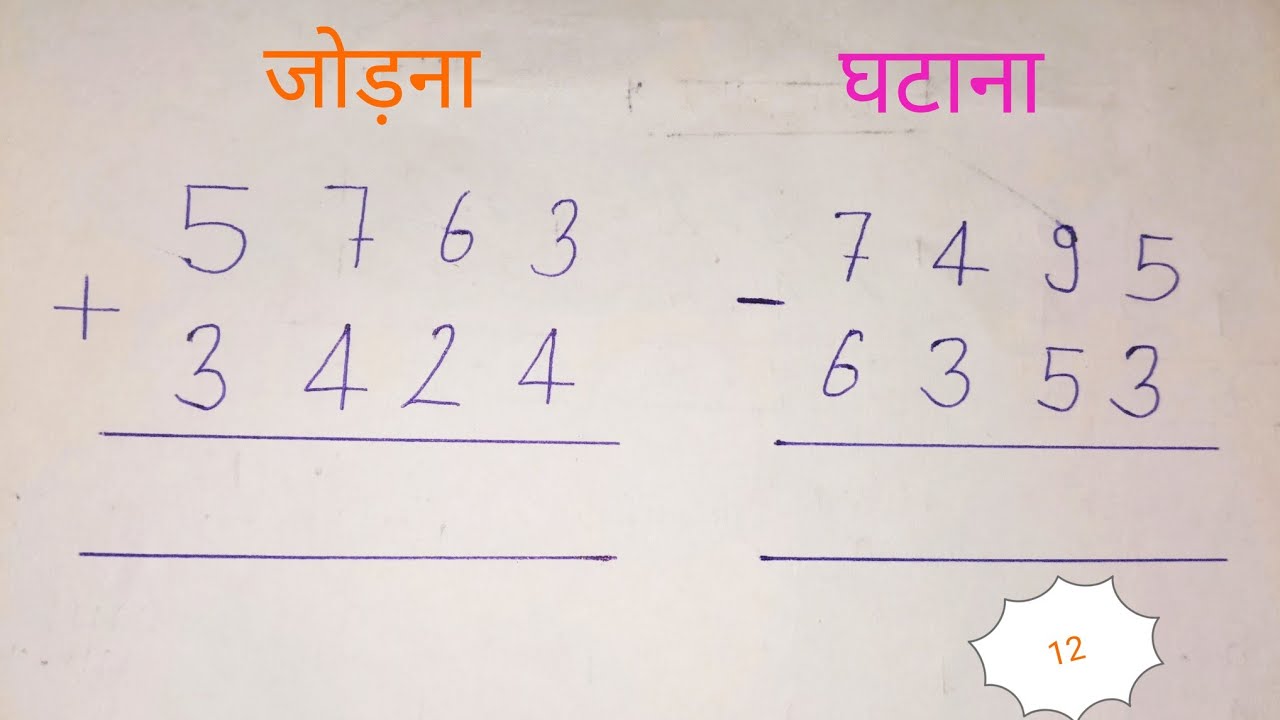 जोड़ना
घटाना
5 7 6 3
+ 3 4 2 4
7 4 9 5
- 6 3 5 3
12